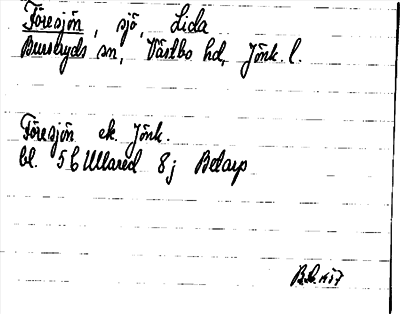 Föresjön, sjö, Lida
Burseryds sn, Västbo hd, Jönk. l.
Föresjön ek. Jönk.
bl. 5 C Ullared 8 j Betarp